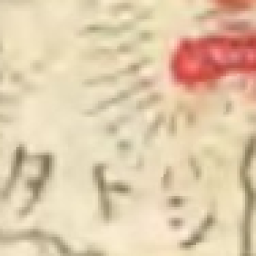 タトシ